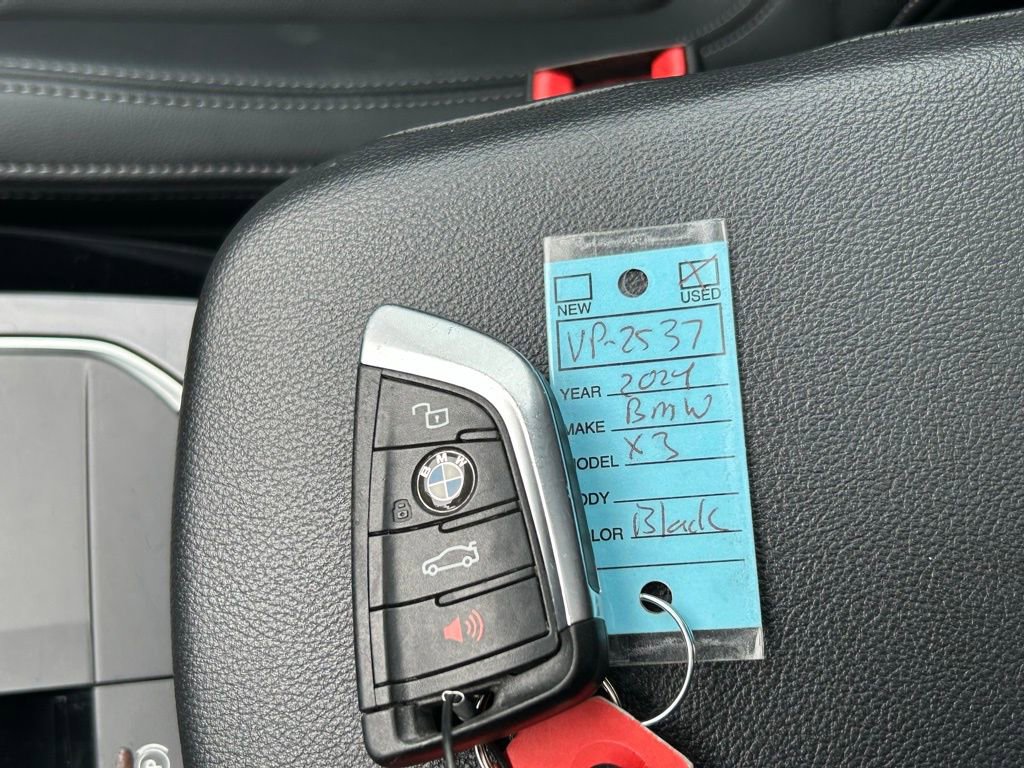 NEW
USED
VP-2537
YEAR 2024
MAKE BMW
MODEL X3
ODY
LOR Black
BMW
P